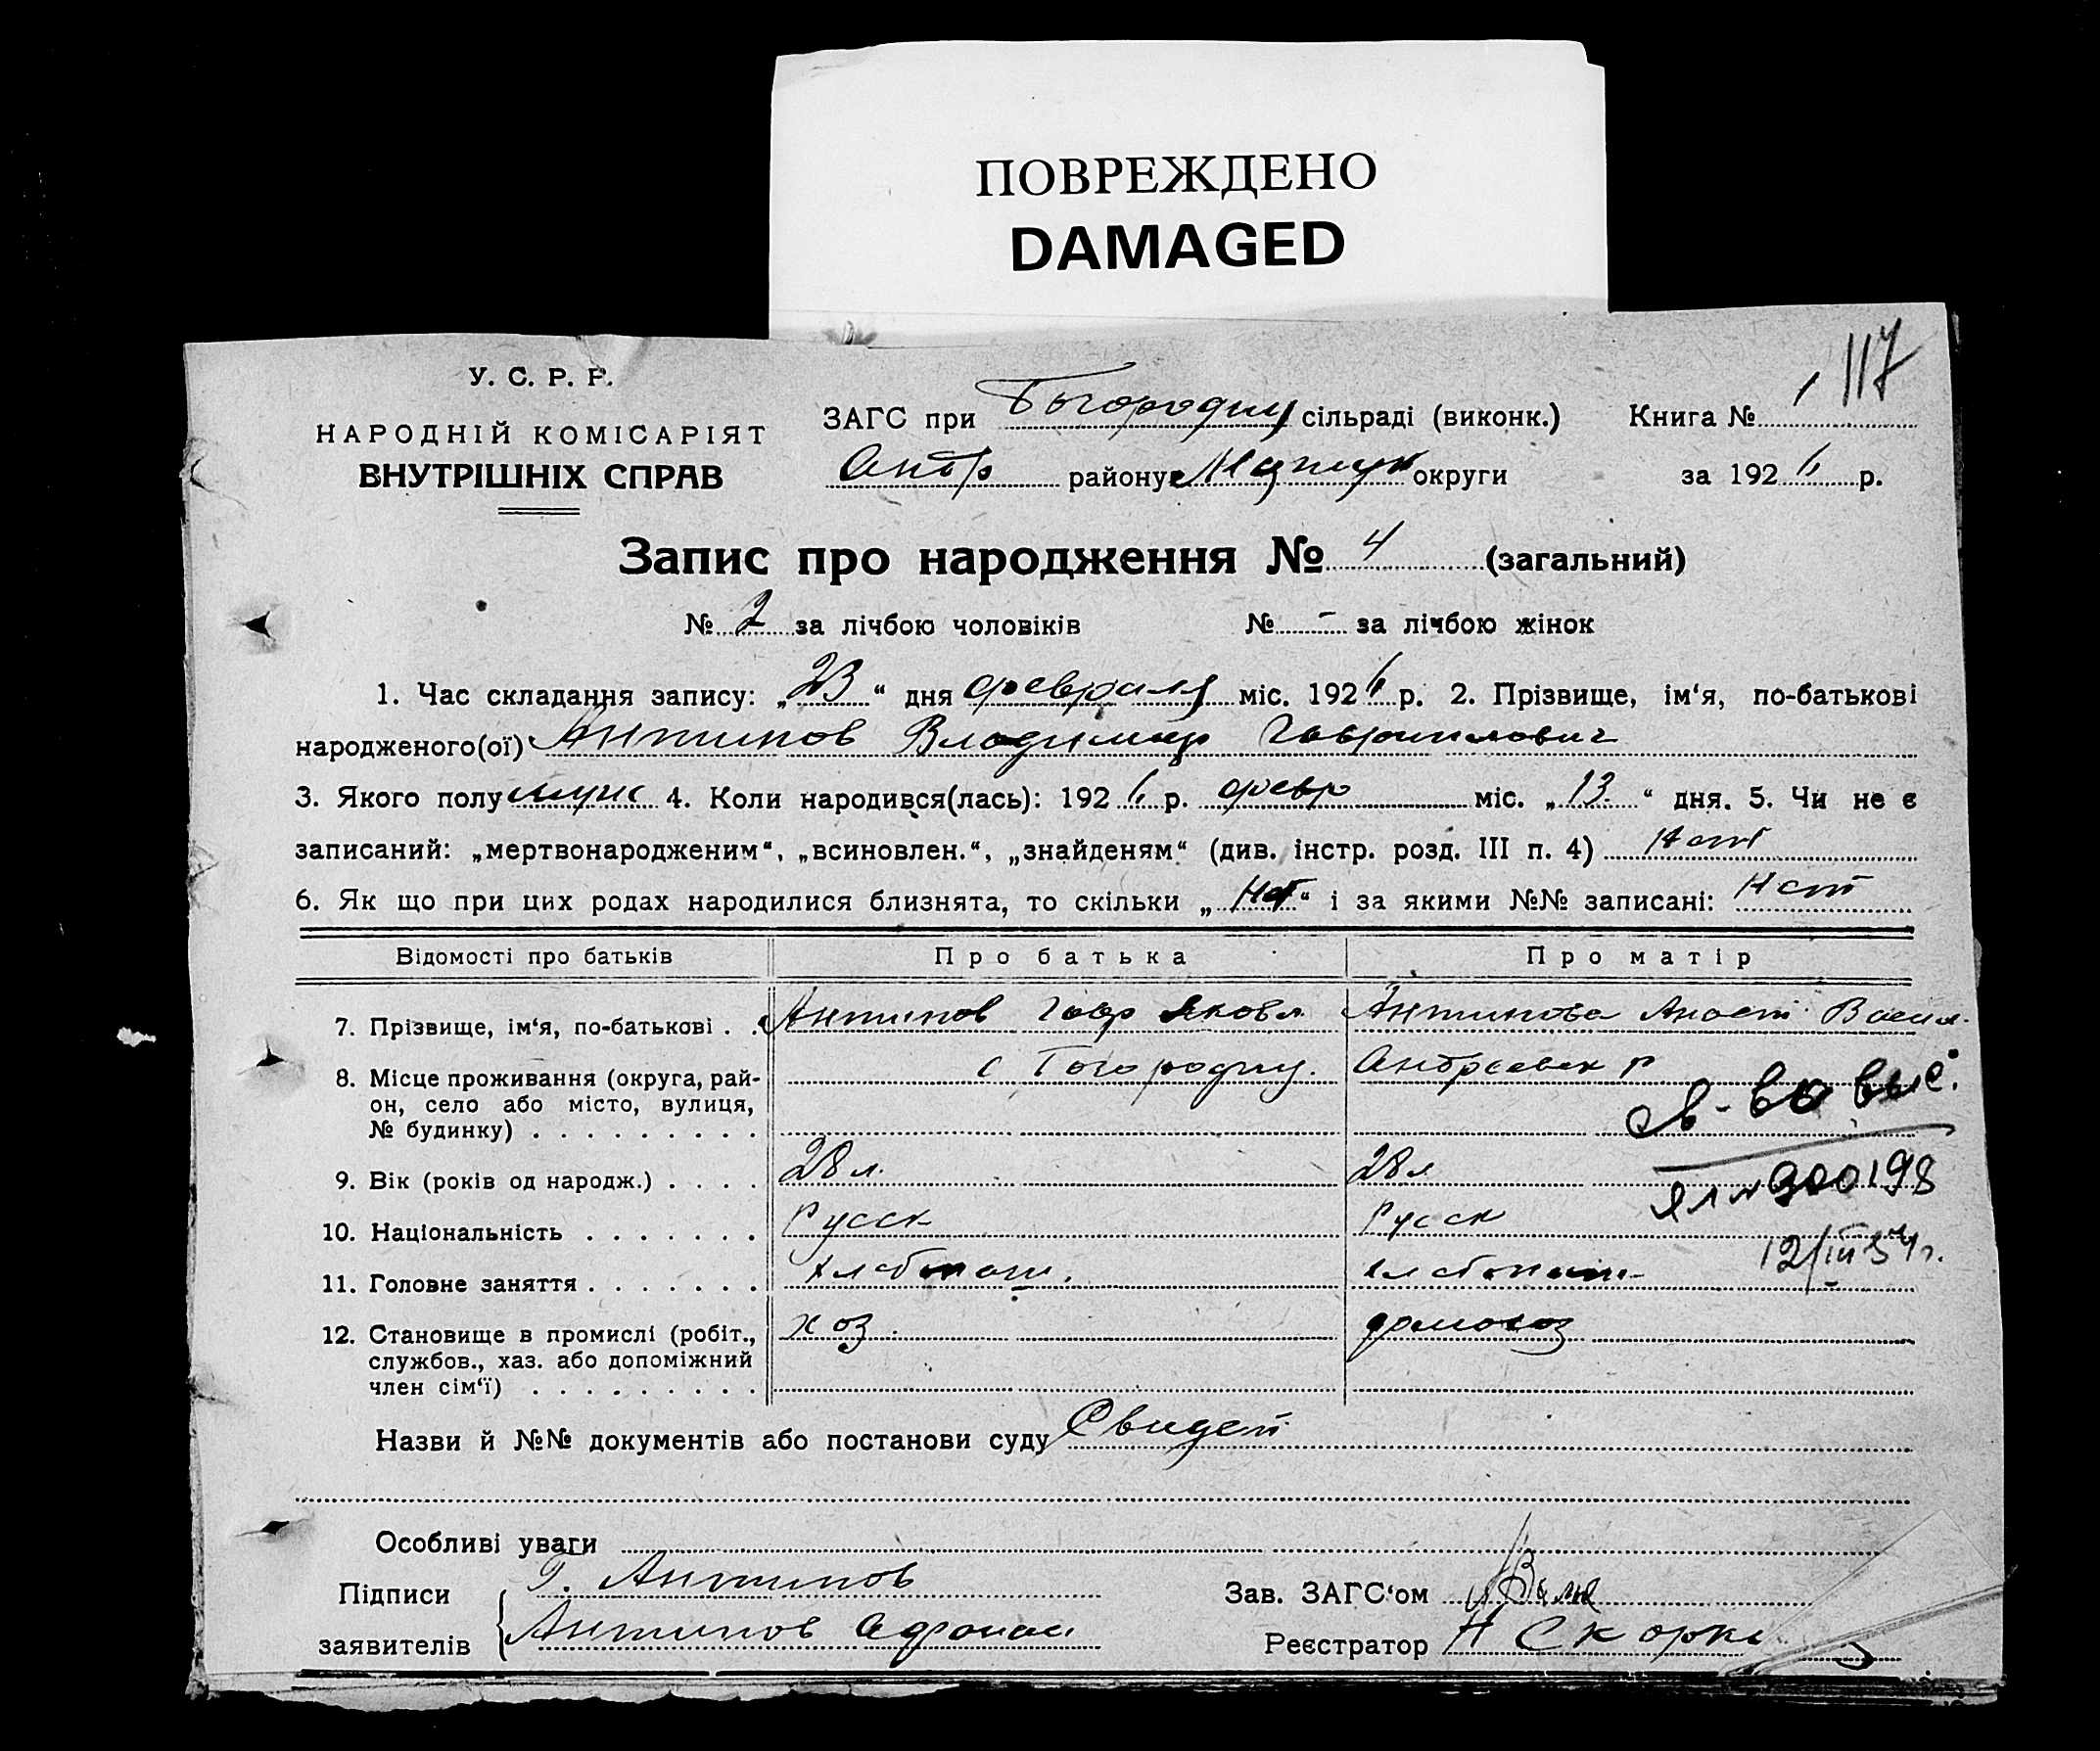 ПОВРЕЖДЕНО
DAMAGED
117
У. С. Р. Р.
НАРОДНІЙ КОМІСАРІЯТ
ВНУТРІШНІХ СПРАВ
ЗАГС при Богородиц сільраді (виконк.) Книга №
району округи за 1926 р.
Запис про народження № 4 (загальний)
№ 2 за лічбою чоловіків № - за лічбою жінок
1. Час складання запису: „23“ дня февраля міс. 1926 р. 2. Прізвище, ім‘я, по-батькові
народженого(ої) Антипов Владимир Гаврилович
3. Якого полу муж 4. Коли народився(лась): 1926 р. февр міс. „13.“ дня. 5. Чи не є
записаний: „мертвонародженим“, „всиновлен.“, „знайденям“ (див. інстр. розд. III п. 4) Нет
6. Як що при цих родах народилися близнята, то скільки „Нет“ і за якими №№ записані: Нет
Відомості про батьків Про батька Про матір
7. Прізвище, ім‘я, по-батькові . . Антипов Гавр Яковл Антипова Анаст Васил.
8. Місце проживання (округа, рай-
он, село або місто, вулиця,
№ будинку) . . . . . . . . .
с Богородиц. Андреевск р
св-во выс.
9. Вік (років од народж.) . . . . 28 л. 28 л
900198
10. Національність . . . . . . . Русск Русск
12/III 54 г.
11. Головне заняття . . . . . . . Хлебопаш. Хлебопаш
12. Становище в промислі (робіт.,
службов., хаз. або допоміжний
член сім‘ї) . . . . . . . . .
хоз. домохоз
Назви й №№ документів або постанови суду Свидет
Особливі уваги
Підписи
заявителів
Г. Антипов
Антипов Афанас
Зав. ЗАГС‘ом
Реєстратор Н Скорк